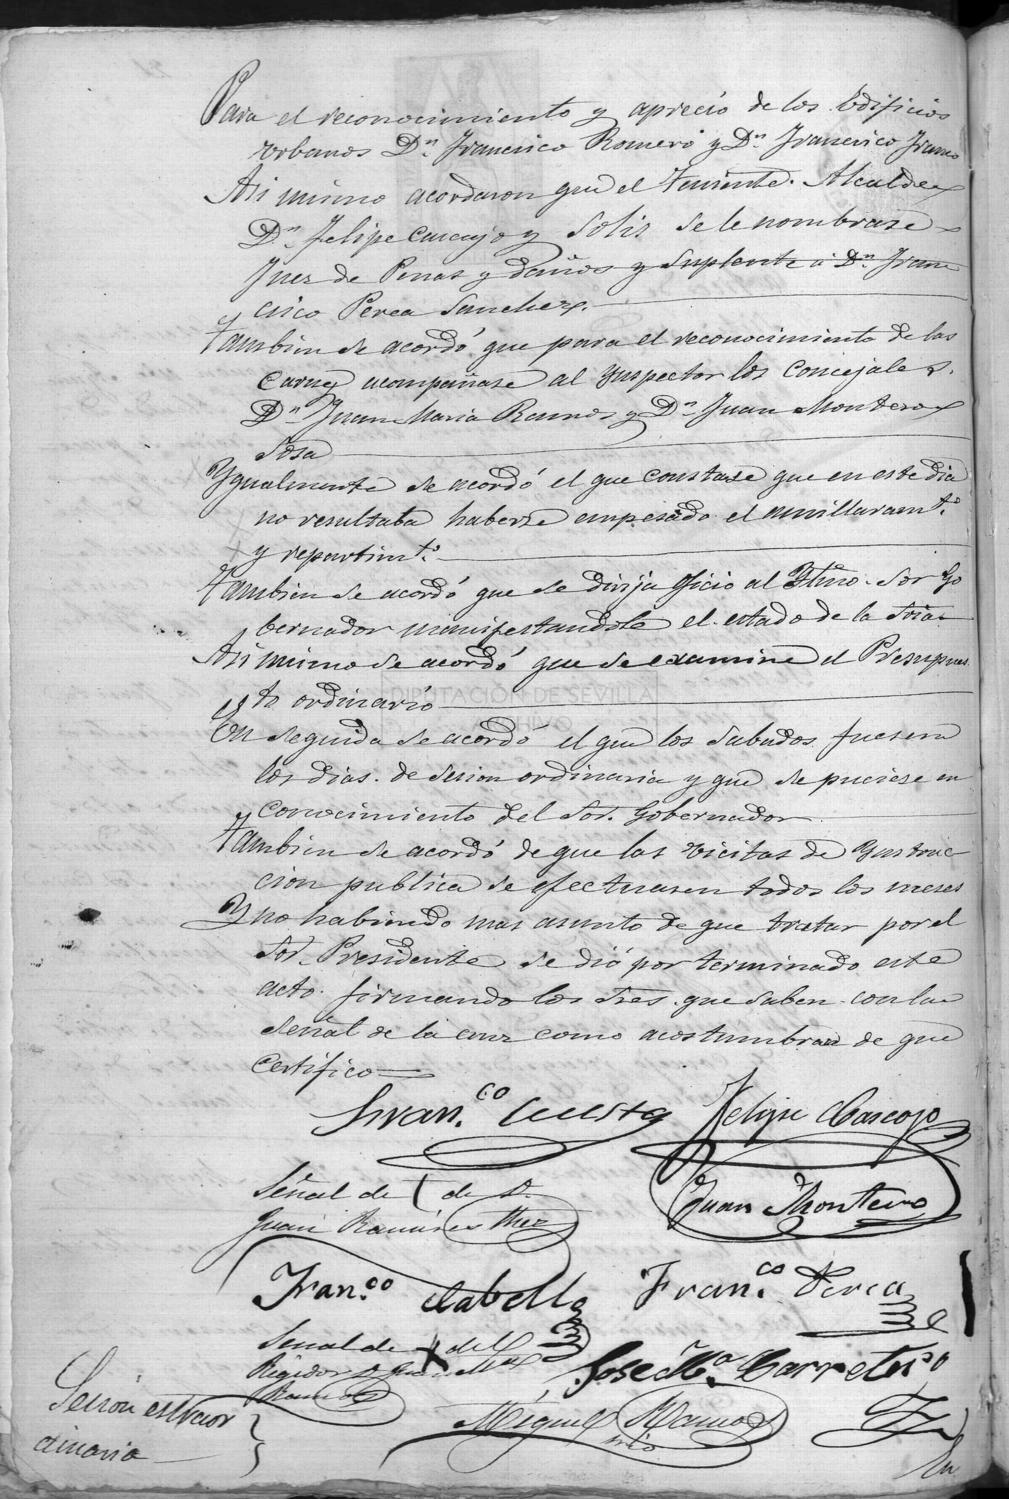 Para el reconocimiento y aprecio de los Edificios
Urbanos Dn. Francisco Romero y Dn. Francisco
Asi mismo acordaron que el Teniente. Alcalde
Dn. Felipe Cascajo y Solis se le nombrase
Juez de Penas y daños y suplente á Dn. Fran
cisco Perea Sanchez.
Tambien se acordó que para el reconocimiento de las
Carnes acompañase al Ynspector los Concejales.
Dn. Juan Maria Ramos y Dn. Juan Montero
Sosa
Ygualmente se acordó el que constase que en este dia
no resultaba haberse empesado el amillaramto.
y repartimto.
Tambien se acordó que se dirija oficio al Yltmo. Sor Go
bernador manifestandole el estado de la
Asi mismo se acordó que se examine el Presupues
to ordinario
DIPUTACIÓN DE SEVILLA
ARCHIVO
En seguida se acordó el que los Sabados fuesen
los dias. de Sesion ordinaria y que se puciese en
conocimiento del Sor. Gobernador
Tambien se acordó de que las vicitas de Ynstruc
cion publica se efectuasen todos los meses
Y no habiendo mas asunto de que tratar por el
Sor. Presidente se dió por terminado este
acto. firmando los Sres. que saben con la
señal de la cruz como acostumbran de que
Certifico
Fran.co Cuesta Felipe Cascajo
Señal de † de D.
Juan Ramires Juan Montero
Fran.co Cabello Fran.co Perea
Señal de † del
Regidor D. Juan Ma.
Ramos José Ma. Carretero
Miguel Ramos
Sesion estraor
dinaria
En